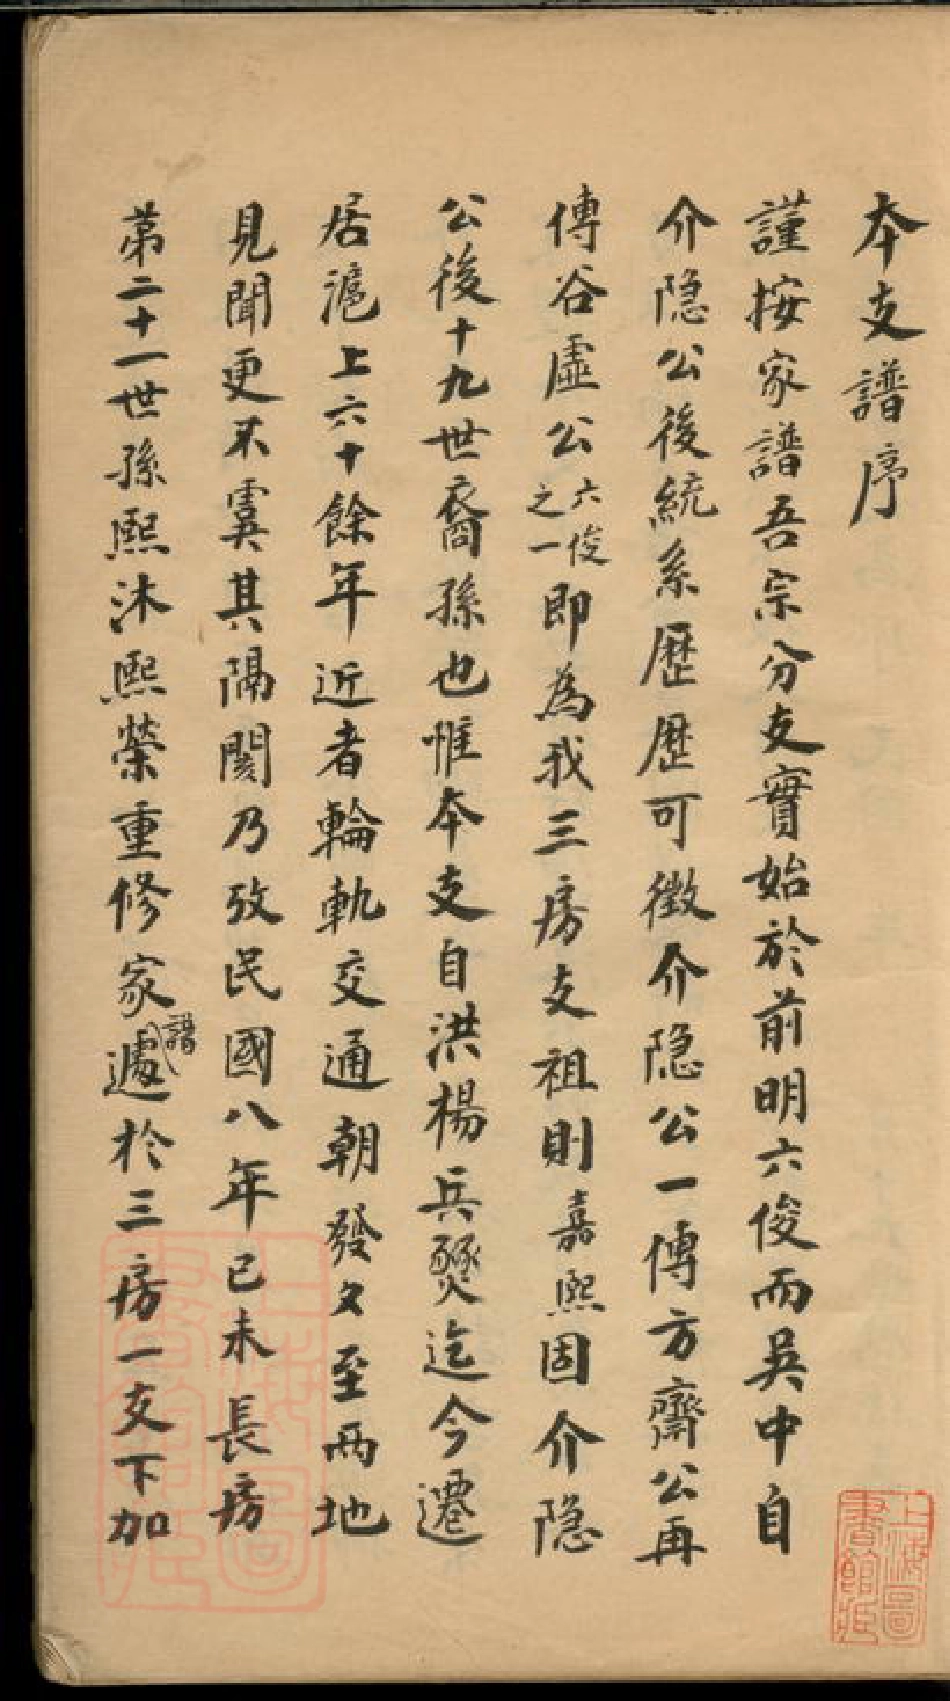 本支譜序
謹按家譜吾宗分支實始於前明六俊而吳中自
介隐公後統系歷歷可徵介隐公一傳方齋公再
傳谷虛公六俊之一即為我三房支祖則嘉熙固介隐
公後十九世裔孫也惟本支自洪楊兵燹迄今遷
居滬上六十餘年近者輪軌交通朝發夕至两地
見聞更不虞其隔閡乃攷民國八年己未長房
第二十一世孫熙沐熙榮重修家譜遽於三房一支下加
上海圖書館藏
上海圖書館藏